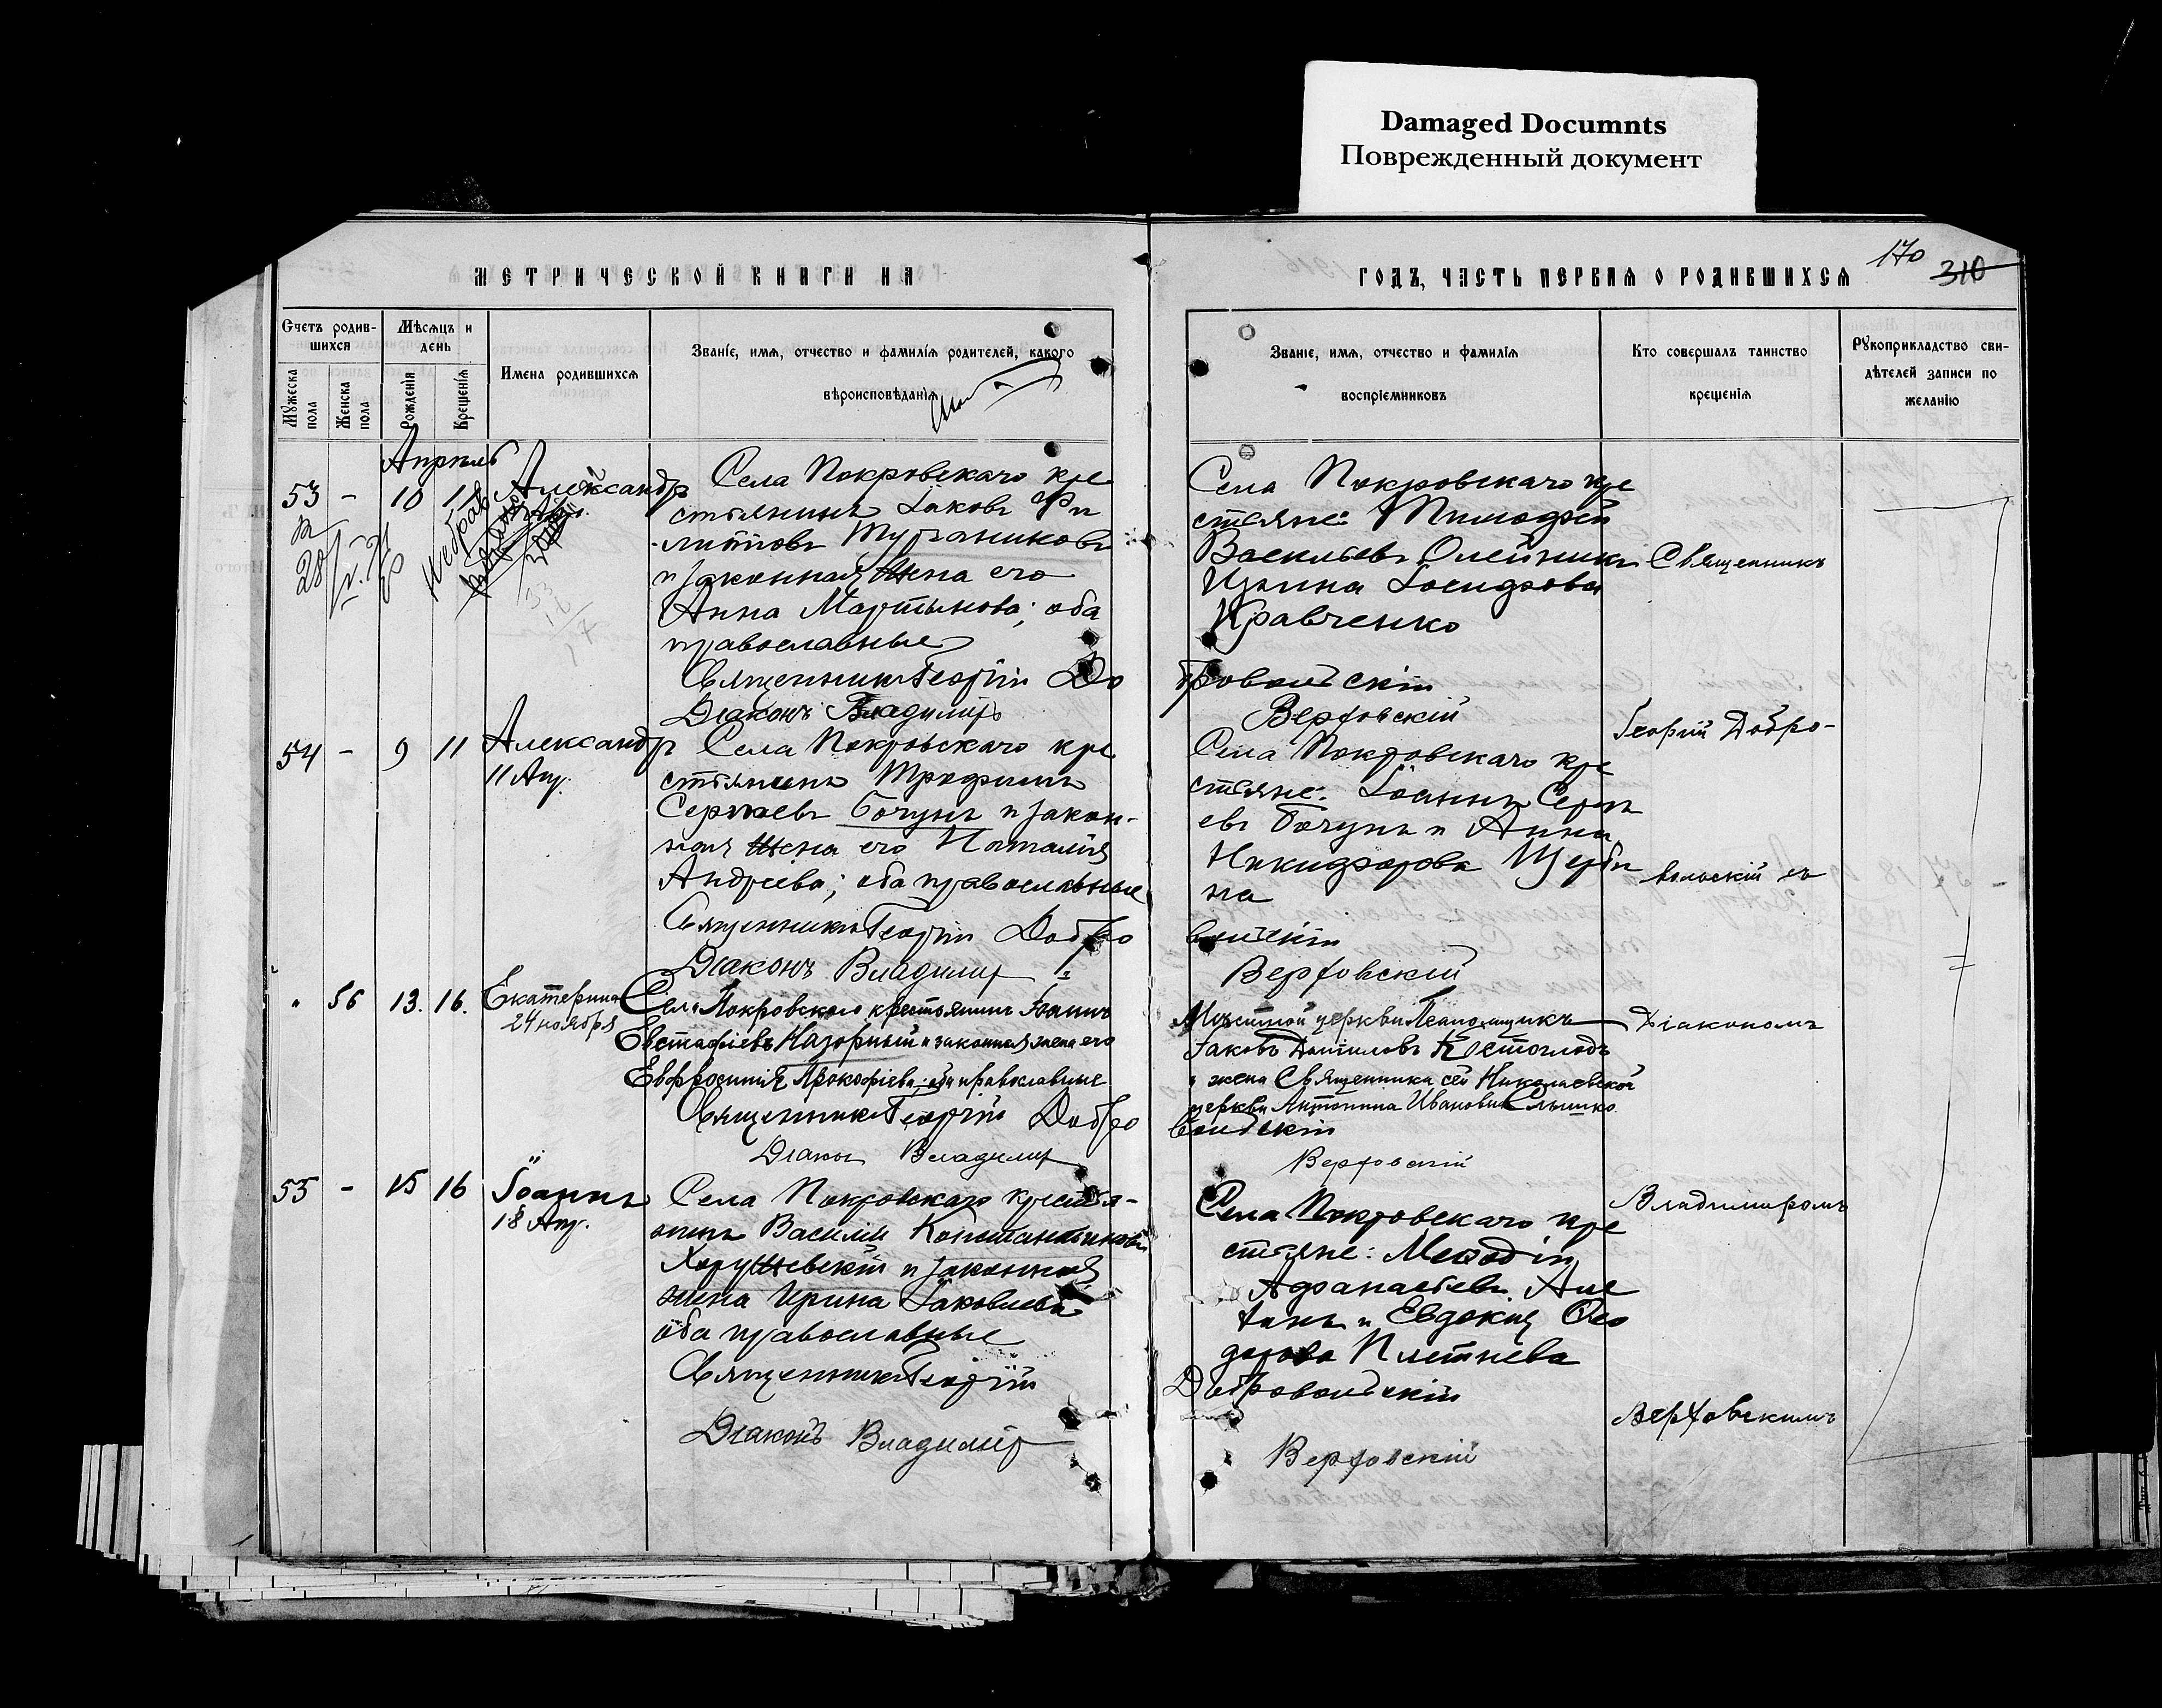 Damaged Documnts
Поврежденный документ
170
310
МЕТРИЧЕСКОЙ КНИГИ НА
ГОДЪ, ЧАСТЬ ПЕРВАЯ О РОДИВШИХСЯ
Счетъ родив-
шихся
Мужеска пола
Женска пола
Мѣсяцъ и
день
Рожденія
Крещенія
Имена родившихся
Званіе, имя, отчество и фамилія родителей, какого
вѣроисповѣданія
Званіе, имя, отчество и фамилія
воспріемниковъ
Кто совершалъ таинство
крещенія
Рукоприкладство сви-
дѣтелей записи по
желанію
Апрѣль
53 - 10 11 Александръ
Села Покровскаго кре
стьянинъ Іаковъ Фи
липповъ
и законная жена его
Анна Мартынова; оба
православные
Священникъ Георгій До
бровольскій
Діаконъ Владиміръ
Верховскій
Села Покровскаго кре
стьяне: Тимофей
Васильевъ Олейникъ
Ирина Іосифова
Кравченко
Священникъ
Георгій Добро-
вольскій съ
Діакономъ
Владиміромъ
Верховскимъ
54 - 9 11 Александръ
11 Апр.
Села Покровскаго кре
стьянинъ Трофимъ
Сергѣевъ Бочунъ и закон-
ная жена его Наталія
Андреева; оба православные
Священникъ Георгій Добро
вольскій
Діаконъ Владиміръ
Верховскій
Села Покровскаго кре
стьяне: Іоаннъ Сергѣ
евъ Бочунъ и Анна
Никифорова Щерби
на
" 56 13. 16. Екатерина
24 ноября
Села Покровскаго крестьянинъ Іоаннъ
Евстафіевъ Нагорный и законная жена его
Евфросинія Прокофіева; оба православные
Священникъ Георгій Добро
вольскій
Діаконъ Владиміръ
Верховскій
Мѣстной церкви Псаломщикъ
Іаковъ Даниловъ
и жена Священника сей Николаевской
церкви Антонина Ивановна
55 - 15 16 Іоаннъ
18 Апр.
Села Покровскаго крестья-
нинъ Василій Константиновъ
Харушевскій и законная
жена Ирина Іаковлева
оба православные
Священникъ Георгій
Добровольскій
Діаконъ Владиміръ
Верховскій
Села Покровскаго кре
стьяне: Меѳодій
Афанасьевъ
и Евдокія Ѳео
дорова Плетнева